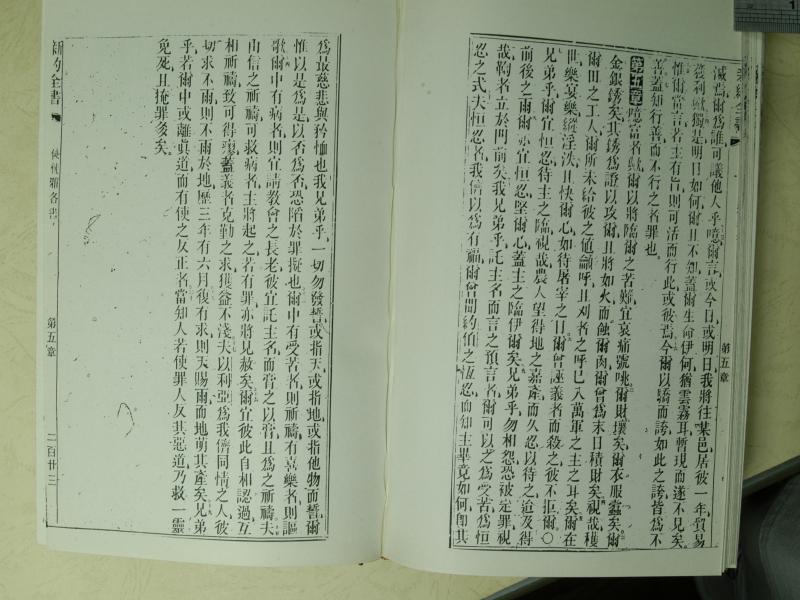 新約全書
滅焉爾爲誰可議他人乎噫爾言或今日或明日我將往某邑居彼一年貿易
獲利歟獨是明日如何爾且不知蓋爾生命伊何猶雲霧耳暫現而遂不見矣
惟爾當言若主有旨則可活而行此或彼焉今爾以驕而誇如此之誇皆爲不
善蓋知行善而不行之者罪也
第五章噫富者歟爾以將臨爾之苦難宜哀痛號咷爾財壞矣爾衣服蠹矣爾
金銀銹矣其銹爲證以攻爾且將如火而蝕爾肉爾曾爲末日積財矣視哉穫
爾田之工人爾所未給彼之値籲呼且刈者之呼已入萬軍之主之耳矣爾在
世樂宴樂縱淫泆且快爾心如待屠宰之日爾曾誣義者而殺之彼不拒爾〇
兄弟乎爾宜恒忍待主之臨視哉農人望得地之嘉產而久忍以待之迨及得
前後之雨爾亦宜恒忍堅爾心蓋主之臨伊爾矣兄弟乎勿相怨恐被定罪視
哉鞫者立於門前矣我兄弟乎託主名而言之預言者爾可以之爲受苦爲恒
忍之式夫恒忍者我儕以爲有福爾曾聞約伯之恆忍而知主畢竟如何卽其
第五章
爲最慈悲與矜恤也我兄弟乎一切勿發誓或指天或指地或指他物而誓爾
惟以是爲是以否爲否恐陷於罪擬也爾中有受苦者則祈禱有喜樂者則謳
歌爾中有病者則宜請教會之長老彼宜託主名而膏之以膏且爲之祈禱夫
由信之祈禱可救病者主將起之若有罪亦將見赦矣爾宜彼此自相認過互
相祈禱致可得瘳蓋義者克勤之求獲益不淺夫以利亞爲我儕同情之人彼
切求不雨則不雨於地歷三年有六月復有求則天賜雨而地萌其產矣兄弟
乎若爾中或離眞道而有使之反正者當知人若使罪人反其惡道乃救一靈
免死且掩罪多矣
新約全書
使徒雅各書
第五章
二百廿三